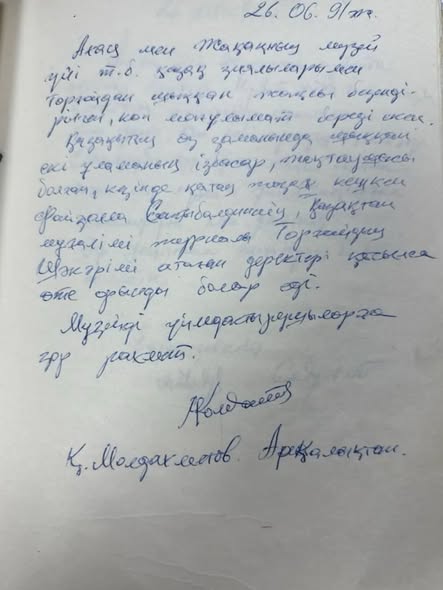 26.06.91ж.
Ахаң мен Жақаңның музей
үйі т.б. қазақ зиялыларымен
Торғайдан шыққан жақсы
көп мағлұмат береді екен.
Қазақтың өз заманында шыққан
екі ұламаның ізбасар,
болған, кезінде қатаң кешкен
Файзолла Сатыбалдиннің, Қазақтан
мұғалімі Торғайдың
Шәкәрімі атаған деректері қосылса
өте орынды болар еді.
Музейді ұйымдастырушыларға
зор рахмет.
Қ. Молдахметов Арқалықтан.